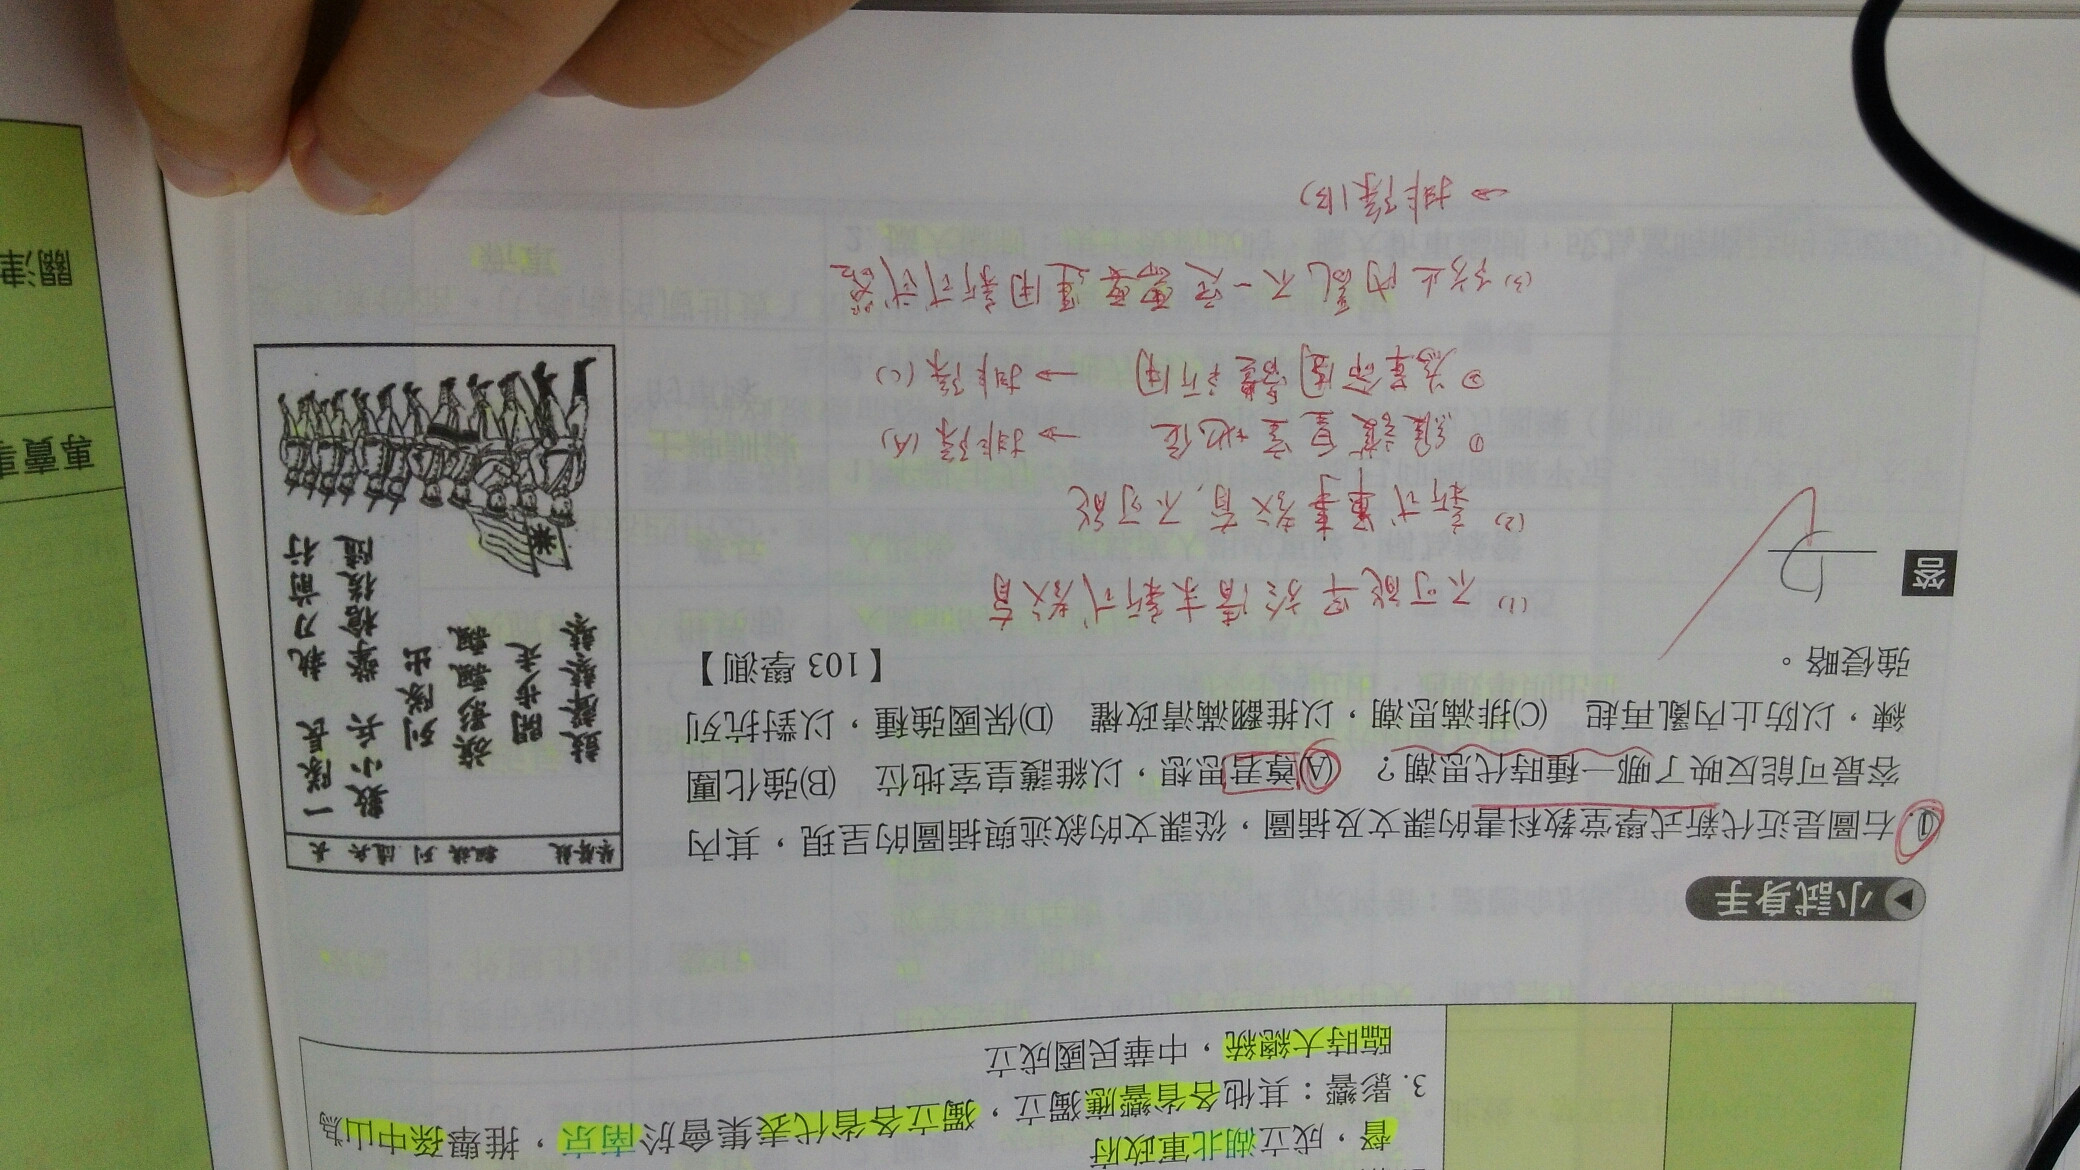 督，成立湖北軍政府
3. 影響：其他各省響應獨立，獨立各省代表集會於南京，推舉孫中山為
臨時大總統，中華民國成立
小試身手
1. 右圖是近代新式學堂教科書的課文及插圖，從課文的敘述與插圖的呈現，其內
容最可能反映了哪一種時代思潮？ (A)尊君思想，以維護皇室地位 (B)強化團
練，以防止內亂再起 (C)排滿思潮，以推翻滿清政權 (D)保國強種，以對抗列
強侵略。
【103 學測】
答
D
(1) 不可能早於清末新式教育
(2) 新式軍事教育，不可能
① 維護皇室地位 → 排除(A)
② 為革命團黨所用 → 排除(C)
(3) 防止內亂不一定需要運用新式武器
→ 排除(B)
鼓聲鼕鼕
開步走
旗影飄飄
列隊出
數小兵 擎槍後隨
一隊長 執刀前行
專賣
關津
新軍